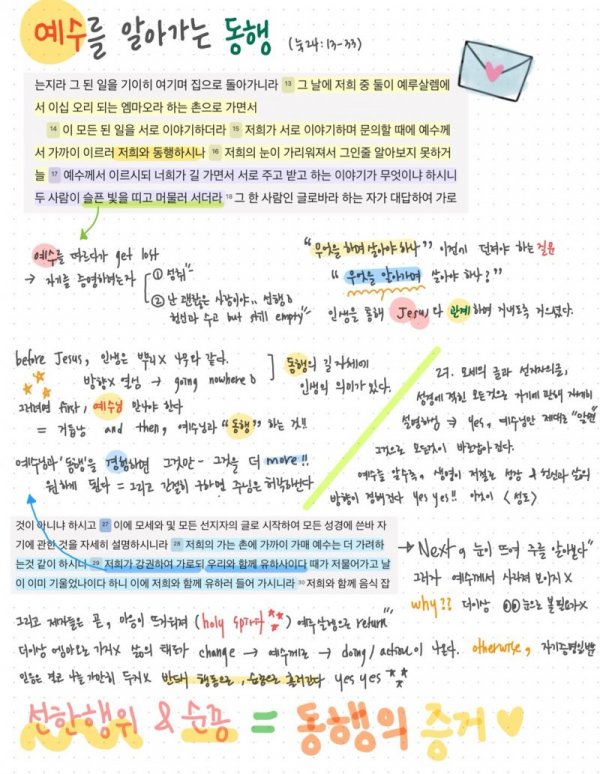 예수를 알아가는 동행 (눅24:13-33)
는지라 그 된 일을 기이히 여기며 집으로 돌아가니라 13 그 날에 저희 중 둘이 예루살렘에
서 이십 오리 되는 엠마오라 하는 촌으로 가면서
14 이 모든 된 일을 서로 이야기하더라 15 저희가 서로 이야기하며 문의할 때에 예수께
서 가까이 이르러 저희와 동행하시나 16 저희의 눈이 가리워져서 그인줄 알아보지 못하거
늘 17 예수께서 이르시되 너희가 길 가면서 서로 주고 받고 하는 이야기가 무엇이냐 하시니
두 사람이 슬픈 빛을 띠고 머물러 서더라 18 그 한 사람인 글로바라 하는 자가 대답하여 가로
예수를 따르다가 get lost
→ 자기를 증명하려는자
① 성취
② 난 괜찮은 사람이야.. 선행
헌신과 수고 but still empty"
"무엇을 하며 살아야 하나" 이전에 던져야 하는 질문
"무엇을 알아가며 살아야 하나?"
인생을 통해 Jesus다 관계하며 거니도록 지으셨다.
before Jesus, 인생은 뿌리X 나무와 같다.
방향X 열심 → going nowhere
동행의 길 자체에
인생의 의미가 있다.
그러려면 first, 예수님 만나야 한다
= 거듭남 and then, 예수님과 "동행" 하는 것!!
예수님과 '동행'을 경험하면 그것만- 그것을 더 more!!
원하게 된다 = 그리고 간절히 구하면 주님은 허락하신다
27. 모세의 글과 선지자의글,
성경에 적힌 모든것으로 자기에 관해 자세히
설명하심 → yes, 예수님만 제대로 "앎면"
그것으로 모든것이 바로잡아 진다.
예수를 알수록, 생명이 저절로 성장 & 헌신과 삶의
방향이 정해진다 yes yes!! 이것이 <성도>
것이 아니냐 하시고 27 이에 모세와 및 모든 선지자의 글로 시작하여 모든 성경에 쓴바 자
기에 관한 것을 자세히 설명하시니라 28 저희의 가는 촌에 가까이 가매 예수는 더 가려하
는것 같이 하시니 29 저희가 강권하여 가로되 우리와 함께 유하사이다 때가 저물어가고 날
이 이미 기울었나이다 하니 이에 저희와 함께 유하러 들어 가시니라 30 저희와 함께 음식 잡
→ Next 9 눈이 뜨여 주를 알아본다"
그러자 예수께서 사라져 보이지X
why?? 더이상 눈으로 볼 필요가X
그리고 제자들은 곧, 마음이 뜨거워져 (holy spirit) 예루살렘으로 return"
더이상 엠마오로 가지X 삶의 태도가 change → 예수께로 → doing/action이 나온다. otherwise, 자기증명일뿐
믿음은 결코 나를 가만히 두지X 반드시 행동으로, 순종으로 흘러간다 yes yes
선한행위 & 순종 = 동행의 증거